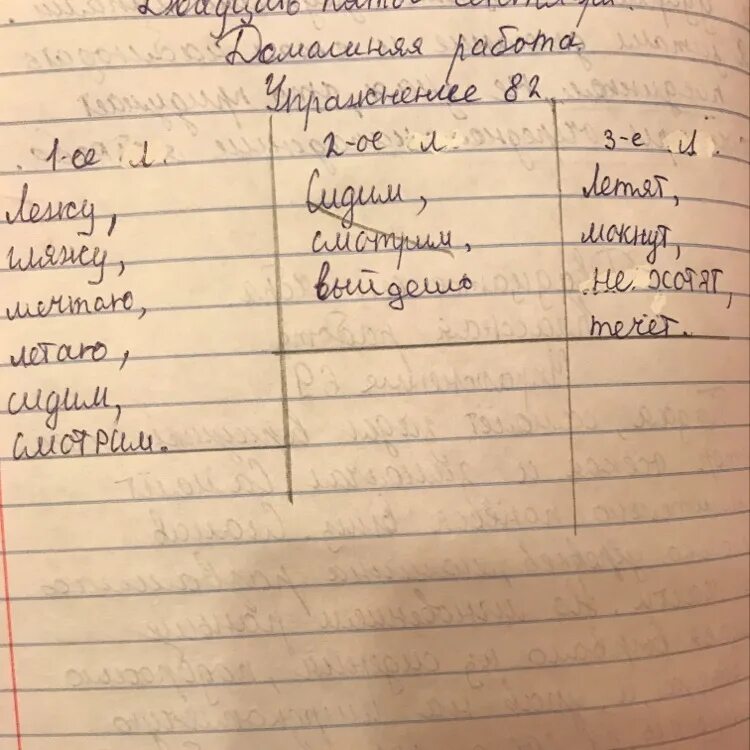 Двадцать пятое сентября.
Домашняя работа.
Упражнение 82.
1-ое л.
Лежу,
гляжу,
мечтаю,
летаю,
сидим,
смотрим.
2-ое л.
Сидим,
смотрим,
выйдешь
3-е л.
Летят,
мокнут,
не хотят,
течёт.